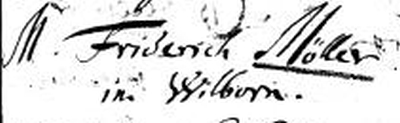 M. Friderich Möller
in Wilborn.